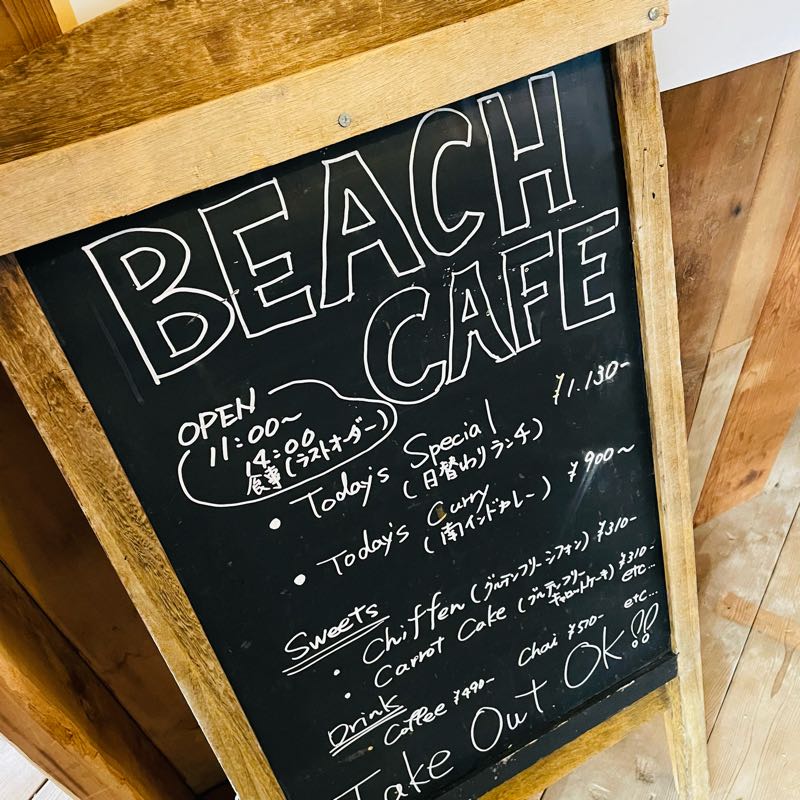 BEACH
CAFE
OPEN
11:00~
14:00
食事(ラストオーダー)
• Today's Special ¥1.130-
(日替わりランチ)
• Today's Curry ¥900~
(南インドカレー)
Sweets
• Chiffen (グルテンフリーシフォン) ¥310-
• Carrot Cake (グルテンフリー
キャロットケーキ) ¥310-
etc...
Drink
• Coffee ¥490- Chai ¥510- etc...
Take Out OK!!